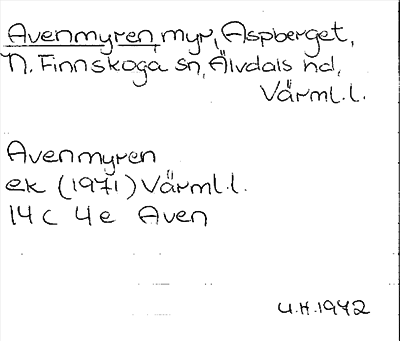 Avenmyren, myr, Aspberget,
N. Finnskoga sn, Älvdals hd,
Värml.l.
Avenmyren
ek (1971) Värml.l.
14 c 4 e Aven
U.H. 1972